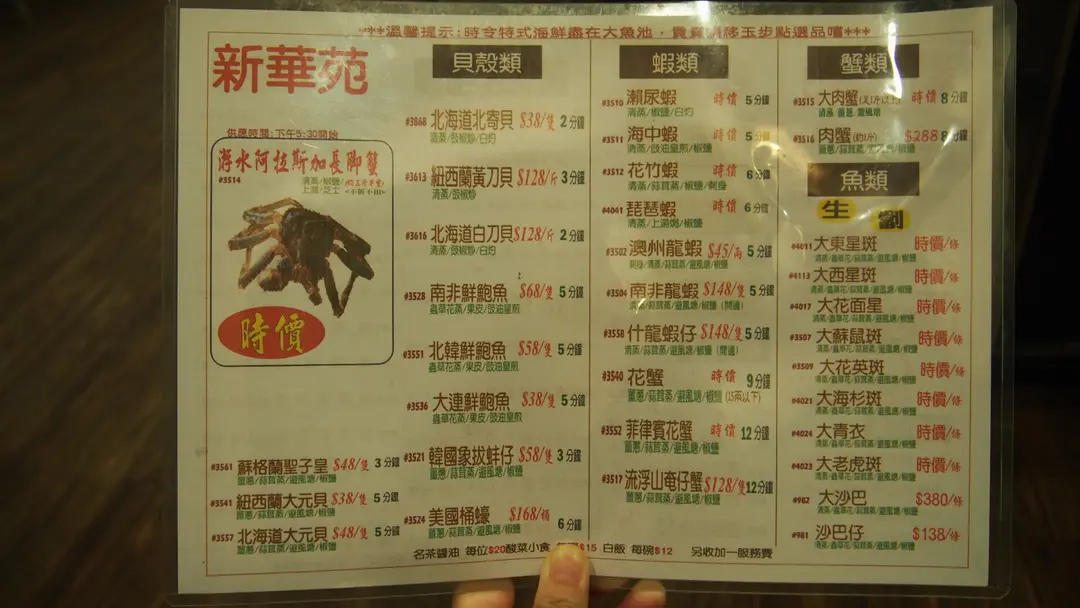 ***溫馨提示:時令特式海鮮盡在大魚池,貴賓請移玉步點選品嚐***
新華苑
供應時間:下午5:30開始
游水阿拉斯加長脚蟹
#3514
清蒸/椒鹽
上湯/芝士
時價
#3561 蘇格蘭聖子皇 $48/隻 3分鐘
薑蔥/蒜茸蒸/避風塘/椒鹽
#3541 紐西蘭大元貝 $38/隻 5分鐘
薑蔥/蒜茸蒸/避風塘/椒鹽
#3557 北海道大元貝 $48/隻 5分鐘
薑蔥/蒜茸蒸/避風塘/椒鹽
貝殼類
#3868 北海道北寄貝 $38/隻 2分鐘
清蒸/豉椒炒/白灼
#3613 紐西蘭黃刀貝 $128/斤 3分鐘
清蒸/豉椒炒
#3616 北海道白刀貝 $128/斤 2分鐘
清蒸/豉椒炒/白灼
#3528 南非鮮鮑魚 $68/隻 5分鐘
蟲草花蒸/果皮/豉油皇煎
#3551 北韓鮮鮑魚 $58/隻 5分鐘
蟲草花蒸/果皮/豉油皇煎
#3536 大連鮮鮑魚 $38/隻 5分鐘
蟲草花蒸/果皮/豉油皇煎
#3521 韓國象拔蚌仔 $58/隻 3分鐘
薑蔥/蒜茸蒸/避風塘/椒鹽
#3524 美國桶蠔 $168/桶 6分鐘
薑蔥/蒜茸蒸/避風塘/椒鹽
蝦類
#3510 瀨尿蝦 時價 5分鐘
清蒸/椒鹽/白灼
#3511 海中蝦 時價 5分鐘
清蒸/豉油皇煎/椒鹽
#3512 花竹蝦 時價 6分鐘
清蒸/蒜茸蒸/椒鹽/刺身
#4041 琵琶蝦 時價 6分鐘
清蒸/上湯焗/椒鹽
#3502 澳州龍蝦 $45/兩 5分鐘
刺身/清蒸/蒜茸蒸/避風塘/椒鹽
#3504 南非龍蝦 $148/隻 5分鐘
清蒸/蒜茸蒸/避風塘/椒鹽(開邊)
#3558 什龍蝦仔 $148/隻 5分鐘
清蒸/蒜茸蒸/避風塘/椒鹽(開邊)
#3540 花蟹 時價 9分鐘
薑蔥/蒜茸蒸/避風塘/椒鹽(15兩以下)
#3552 菲律賓花蟹 時價 12分鐘
薑蔥/蒜茸蒸/避風塘/椒鹽
#3517 流浮山奄仔蟹 $128/隻 12分鐘
薑蔥/蒜茸蒸/避風塘/椒鹽
蟹類
#3515 大肉蟹 時價 8分鐘
清蒸 薑蔥 避風塘
#3516 肉蟹(約1斤) $288 8分鐘
魚類
生 劏
#4011 大東星斑 時價/條
清蒸/蟲草花/蒜茸蒸/避風塘/椒鹽
#4113 大西星斑 時價/條
清蒸/蟲草花/蒜茸蒸/避風塘/椒鹽
#4017 大花面星 時價/條
清蒸/蟲草花/蒜茸蒸/避風塘/椒鹽
#3507 大蘇鼠斑 時價/條
清蒸/蟲草花/蒜茸蒸/避風塘/椒鹽
#3509 大花英斑 時價/條
清蒸/蟲草花/蒜茸蒸/避風塘/椒鹽
#4021 大海杉斑 時價/條
清蒸/蟲草花/蒜茸蒸/避風塘/椒鹽
#4024 大青衣 時價/條
清蒸/蟲草花/蒜茸蒸/避風塘/椒鹽
#4023 大老虎斑 時價/條
清蒸/蟲草花/蒜茸蒸/避風塘/椒鹽
#982 大沙巴 $380/條
清蒸/蟲草花/蒜茸蒸/避風塘/椒鹽
#981 沙巴仔 $138/條
清蒸/蟲草花/蒜茸蒸/避風塘/椒鹽
名茶醬油 每位$20 酸菜小食 $15 白飯 每碗$12 另收加一服務費